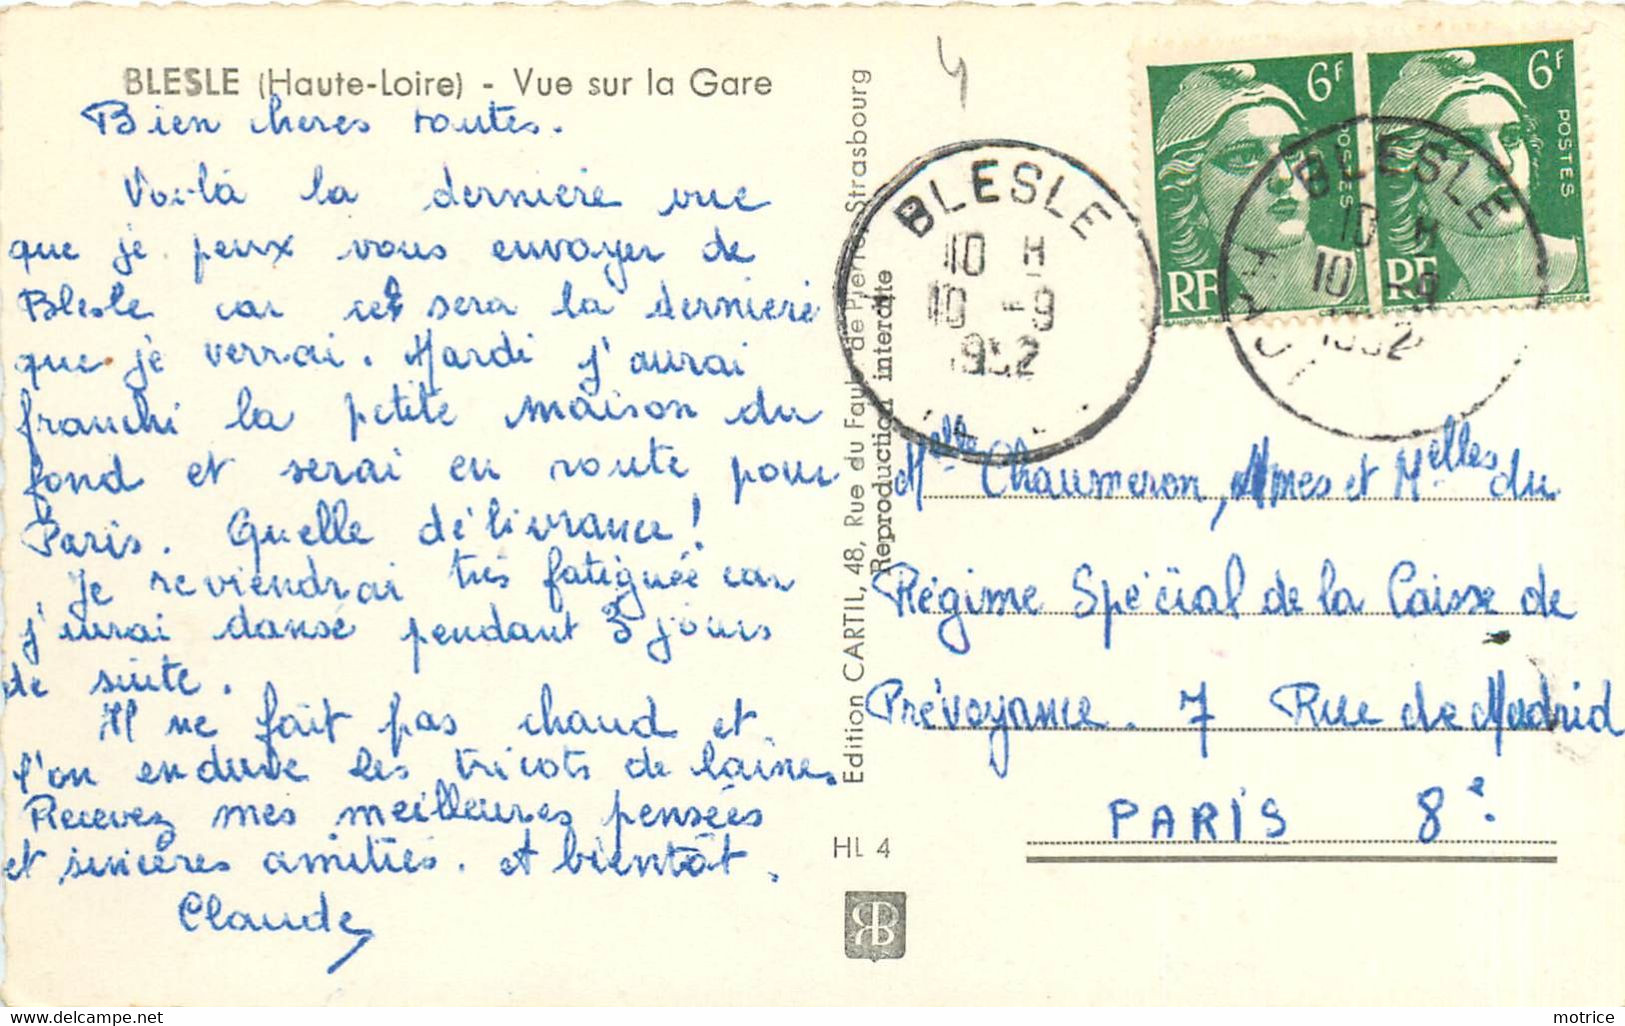 BLESLE (Haute-Loire) - Vue sur la Gare
Bien cheres toutes.
Voilà la dernière vue
que je peux vous envoyer de
Blesle car ce sera la dernière
que je verrai. Mardi j'aurai
franchi la petite maison du
fond et serai en route pour
Paris. Quelle délivrance!
Je reviendrai très fatiguée car
j'aurai dansé pendant 3 jours
de suite.
Il ne fait pas chaud et
l'on endure les tricots de laine.
Recevez mes meilleures pensées
et sincères amitiés. A bientôt.
Claude
Edition CARTIL, 48, Rue du Faub. de Pierre, Strasbourg
Reproduction interdite
HL 4
4
BLESLE
10 H
10 - 9
1952
6F
POSTES
RF
6F
POSTES
RF
BLESLE
10 H
10 - 9
1952
Melle Chaumeron, Mmes et Melles du
Régime Spécial de la Caisse de
Prévoyance. 7 Rue de Madrid
PARIS 8e.
motrice